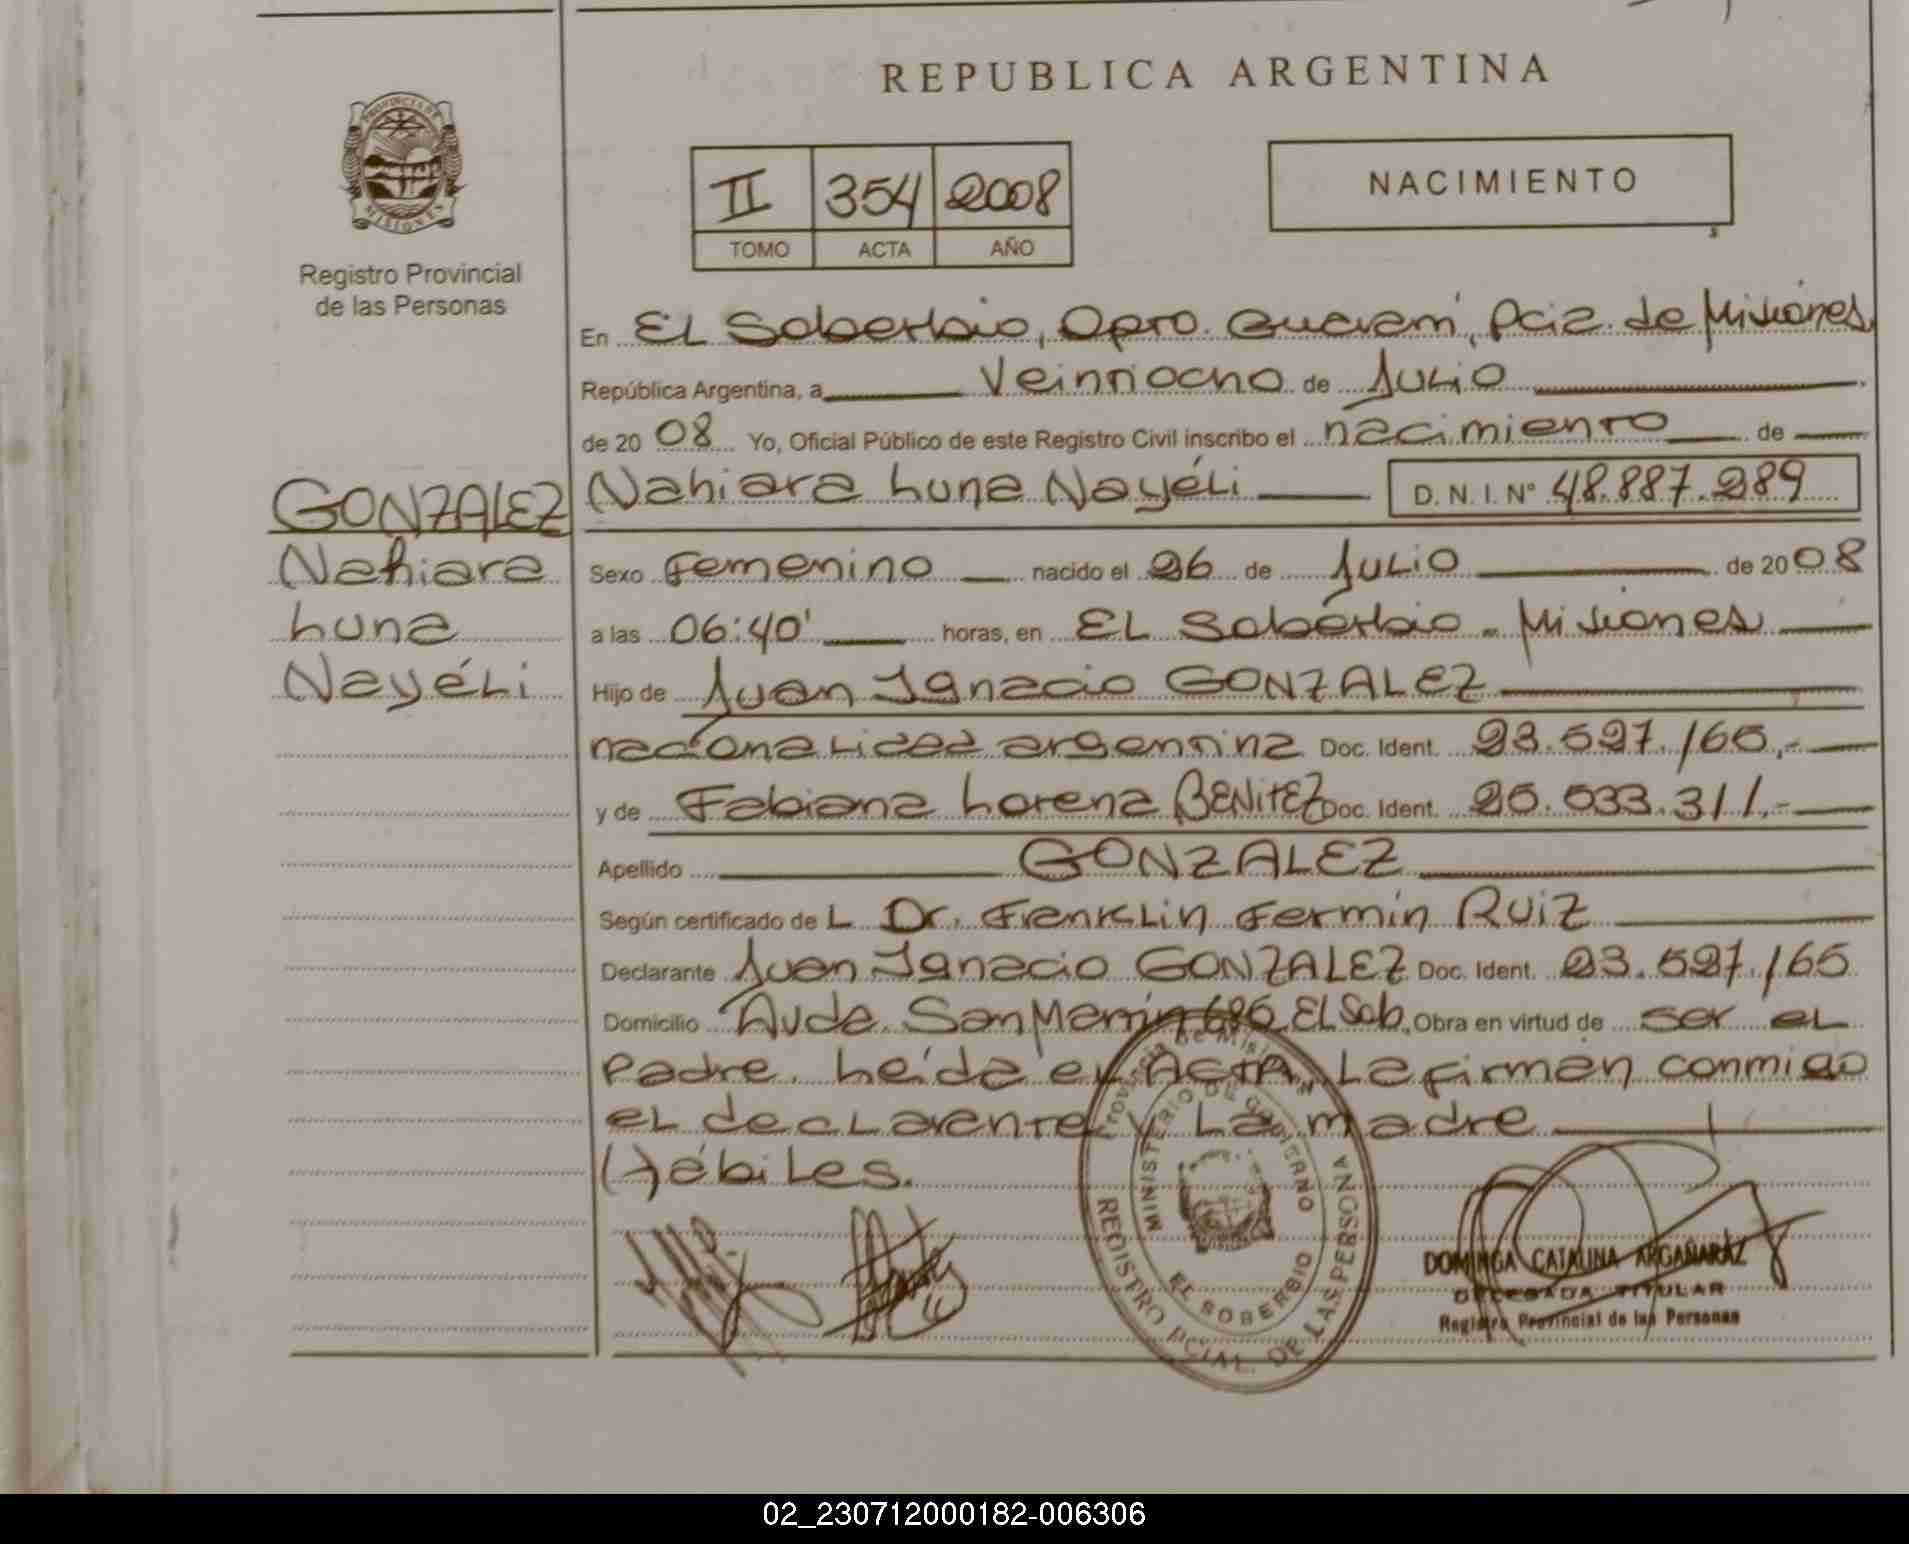 REPUBLICA ARGENTINA
PROVINCIA DE
MISIONES
Registro Provincial
de las Personas
II 354 2008
TOMO ACTA AÑO
NACIMIENTO
En El Soberbio, Dpto. Guaraní, Pcia. de Misiones
República Argentina, a Veintiocho de Julio
de 2008 Yo, Oficial Público de este Registro Civil inscribo el nacimiento de
Nahiara Luna Nayéli D. N. I. N° 48.887.289
GONZALEZ
Nahiara
Luna
Nayéli
Sexo Femenino nacido el 26 de Julio de 2008
a las 06:40' horas, en El Soberbio - Misiones
Hijo de Juan Ignacio GONZALEZ
nacionalidad argentina Doc. Ident. 23.527.165.-
y de Fabiana Lorena BENITEZ Doc. Ident. 25.033.311.-
Apellido GONZALEZ
Según certificado del Dr. Franklin Fermín Ruiz
Declarante Juan Ignacio GONZALEZ Doc. Ident. 23.527.165
Domicilio Avda. San Martín 686 El Sob. Obra en virtud de ser el
Padre. Leída el ACTA, La firman conmigo
el declarante y La madre
Hábiles.
Provincia de Misiones
MINISTERIO DE GOBIERNO
EL SOBERBIO
REGISTRO PCIAL. DE LAS PERSONAS
DOMINGA CATALINA ARGAÑARAZ
DELEGADA TITULAR
Registro Provincial de las Personas
02_230712000182-006306